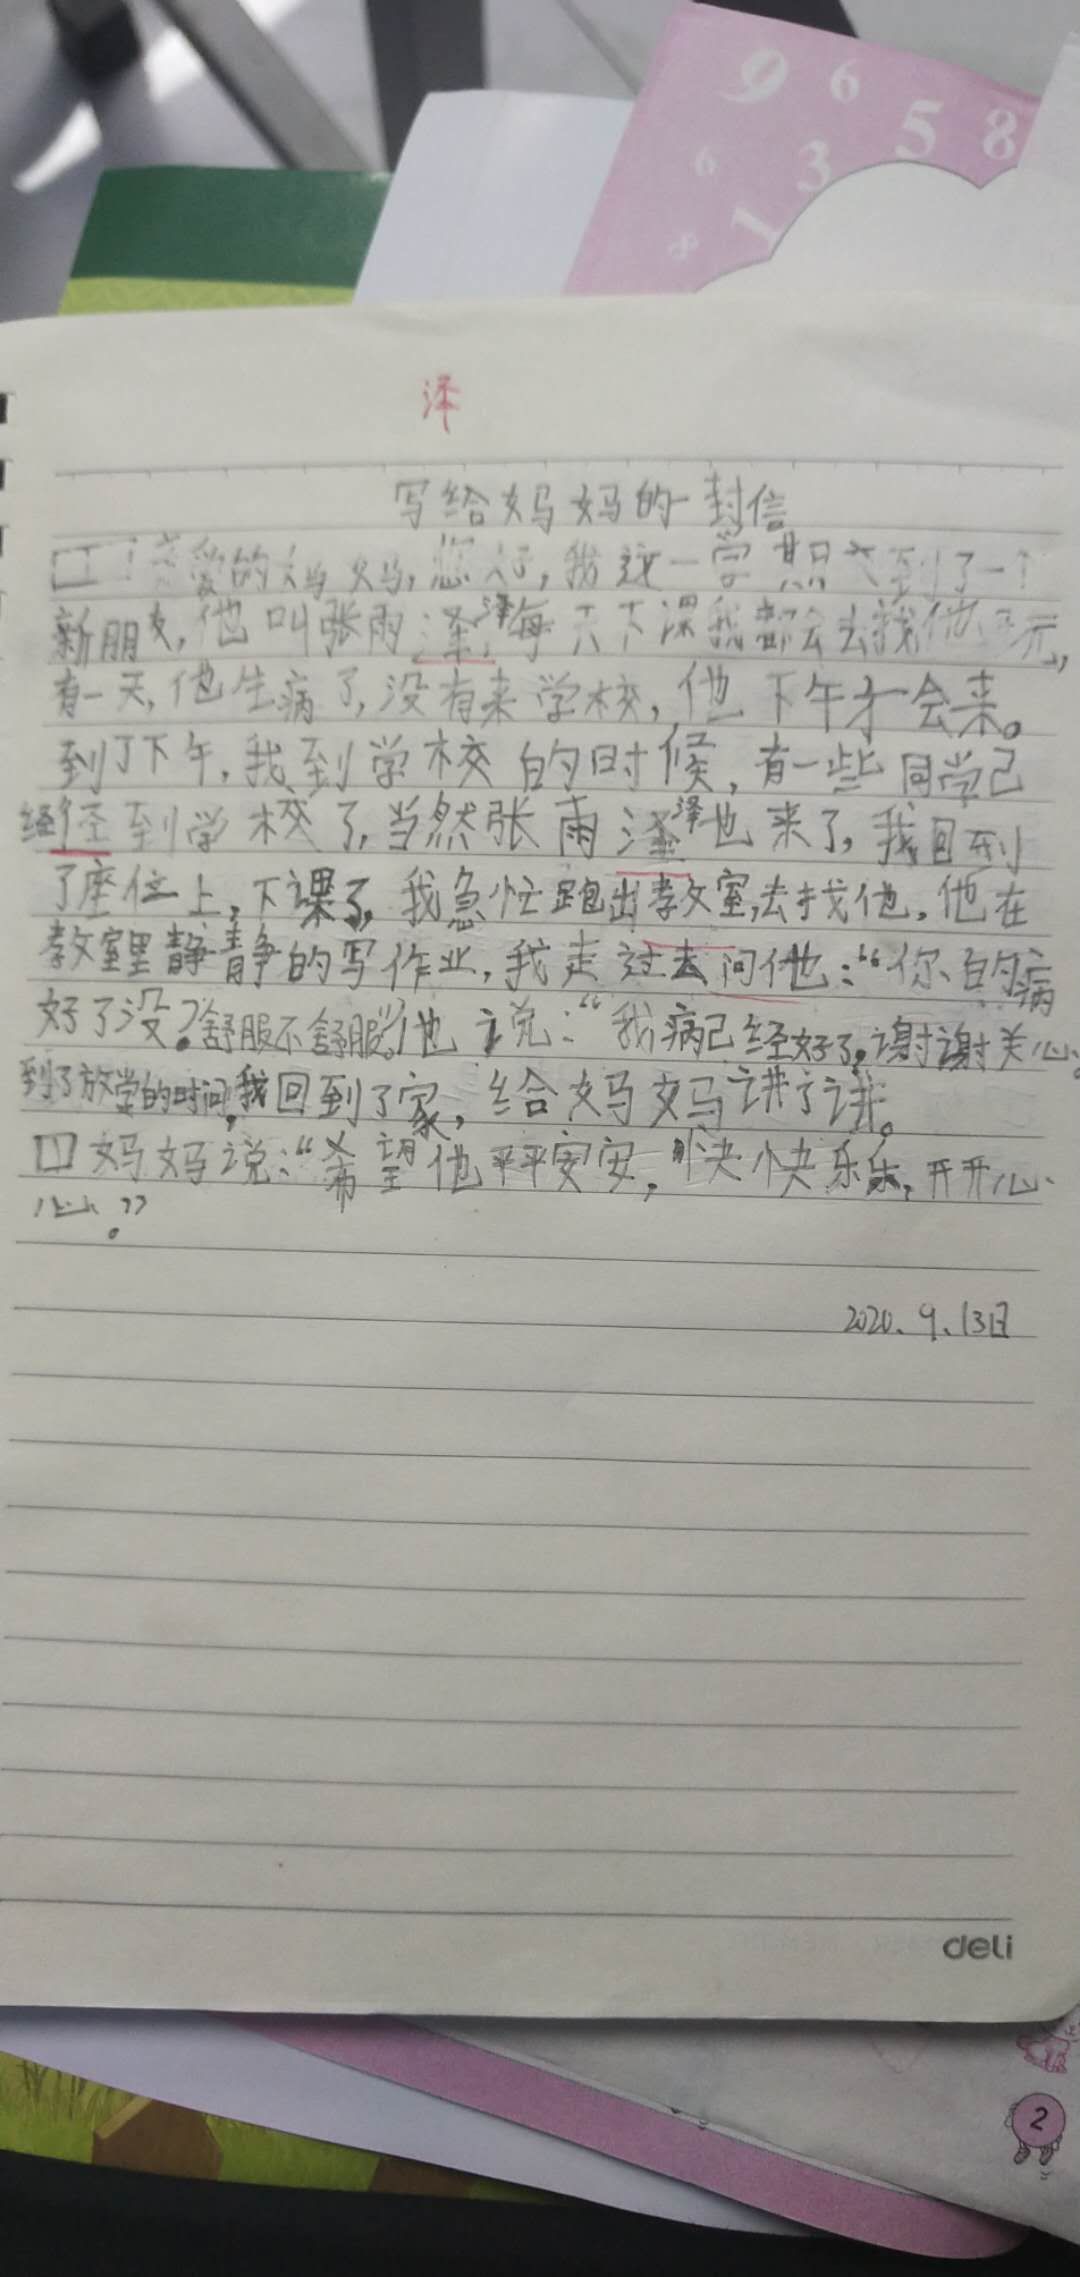 9 6
6 3 5 8
8 1
泽
写给妈妈的一封信
亲爱的妈妈,您好,我这一学期交到了一个
新朋友,他叫张雨泽,每天下课我都会去找他玩,
有一天,他生病了,没有来学校,他下午才会来。
到了下午,我到学校的时候,有一些同学已
经到学校了,当然张雨泽也来了,我回到
了座位上,下课了,我急忙跑出教室,去找他,他在
教室里静静的写作业,我走过去问他:“你的病
好了没?舒服不舒服?”他说:“我病已经好了,谢谢关心。
到了放学的时间,我回到了家,给妈妈讲了讲。
妈妈说:“希望他平平安安,快快乐乐,开开心
心。”
2020.9.13日
deli
2